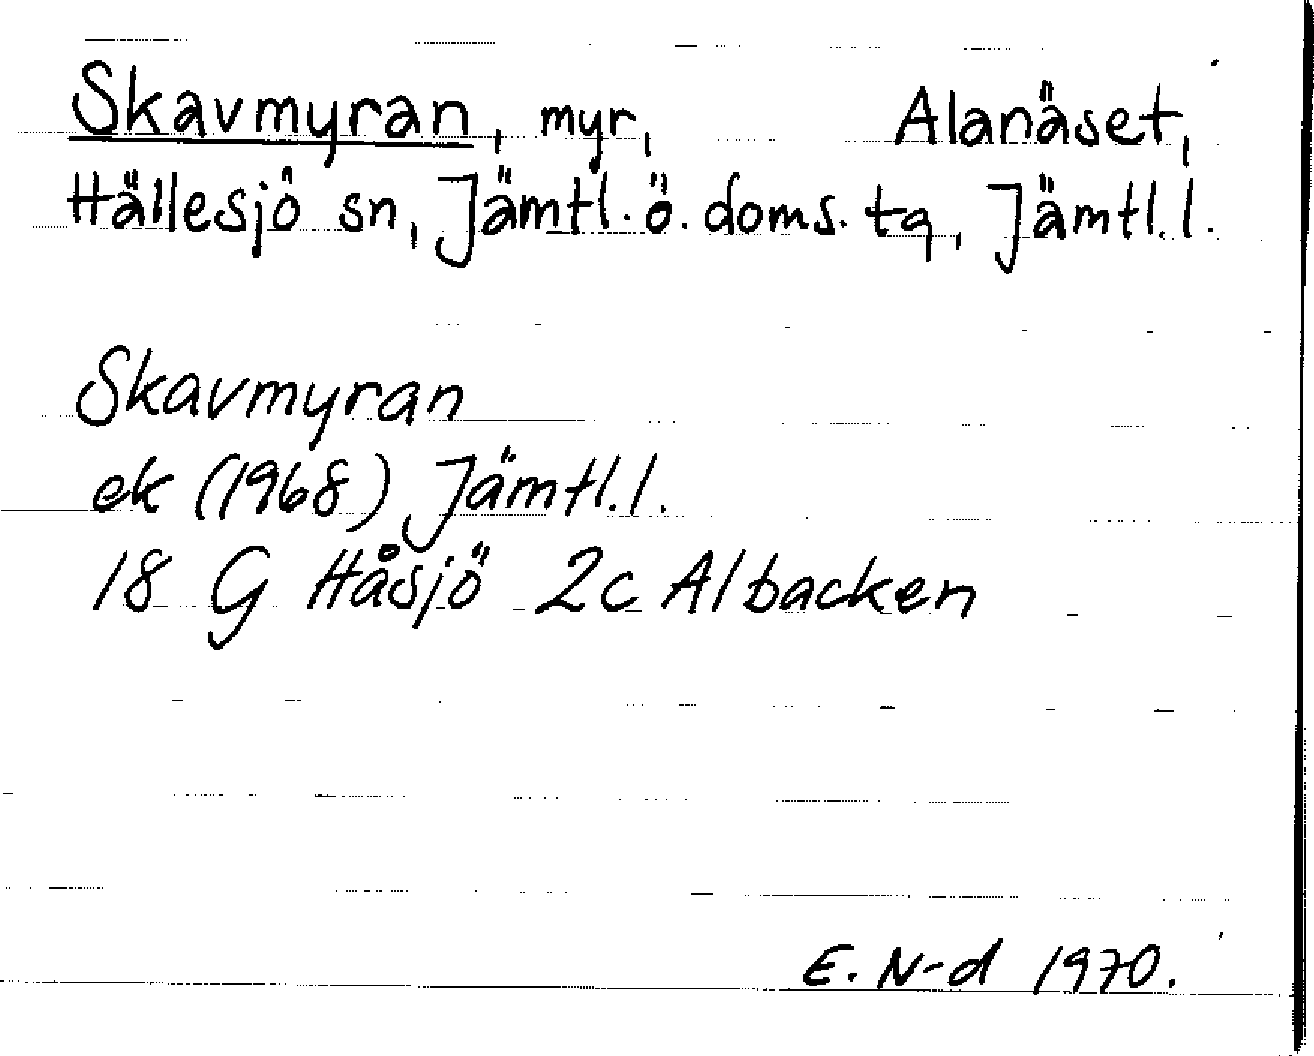 Skavmyran, myr, Alanäset,
Hällesjö sn, Jämtl. ö. doms. tg, Jämtl. l.
Skavmyran
ek (1968) Jämtl. l.
18 G Håsjö 2c Albacken
E. N-d 1970.